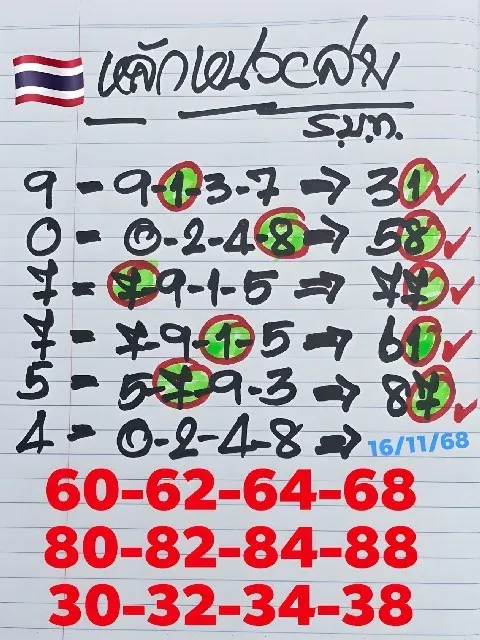 หลักหน่วยล่าง
ร.บ.ท.
9 = 9-1-3-7 ⇒ 31 ✓
0 = 0-2-4-8 ⇒ 58 ✓
7 = 7-9-1-5 ⇒ 77 ✓
7 = 7-9-1-5 ⇒ 61 ✓
5 = 5-7-9-3 ⇒ 87 ✓
4 = 0-2-4-8 ⇒ 16/11/68
60-62-64-68
80-82-84-88
30-32-34-38